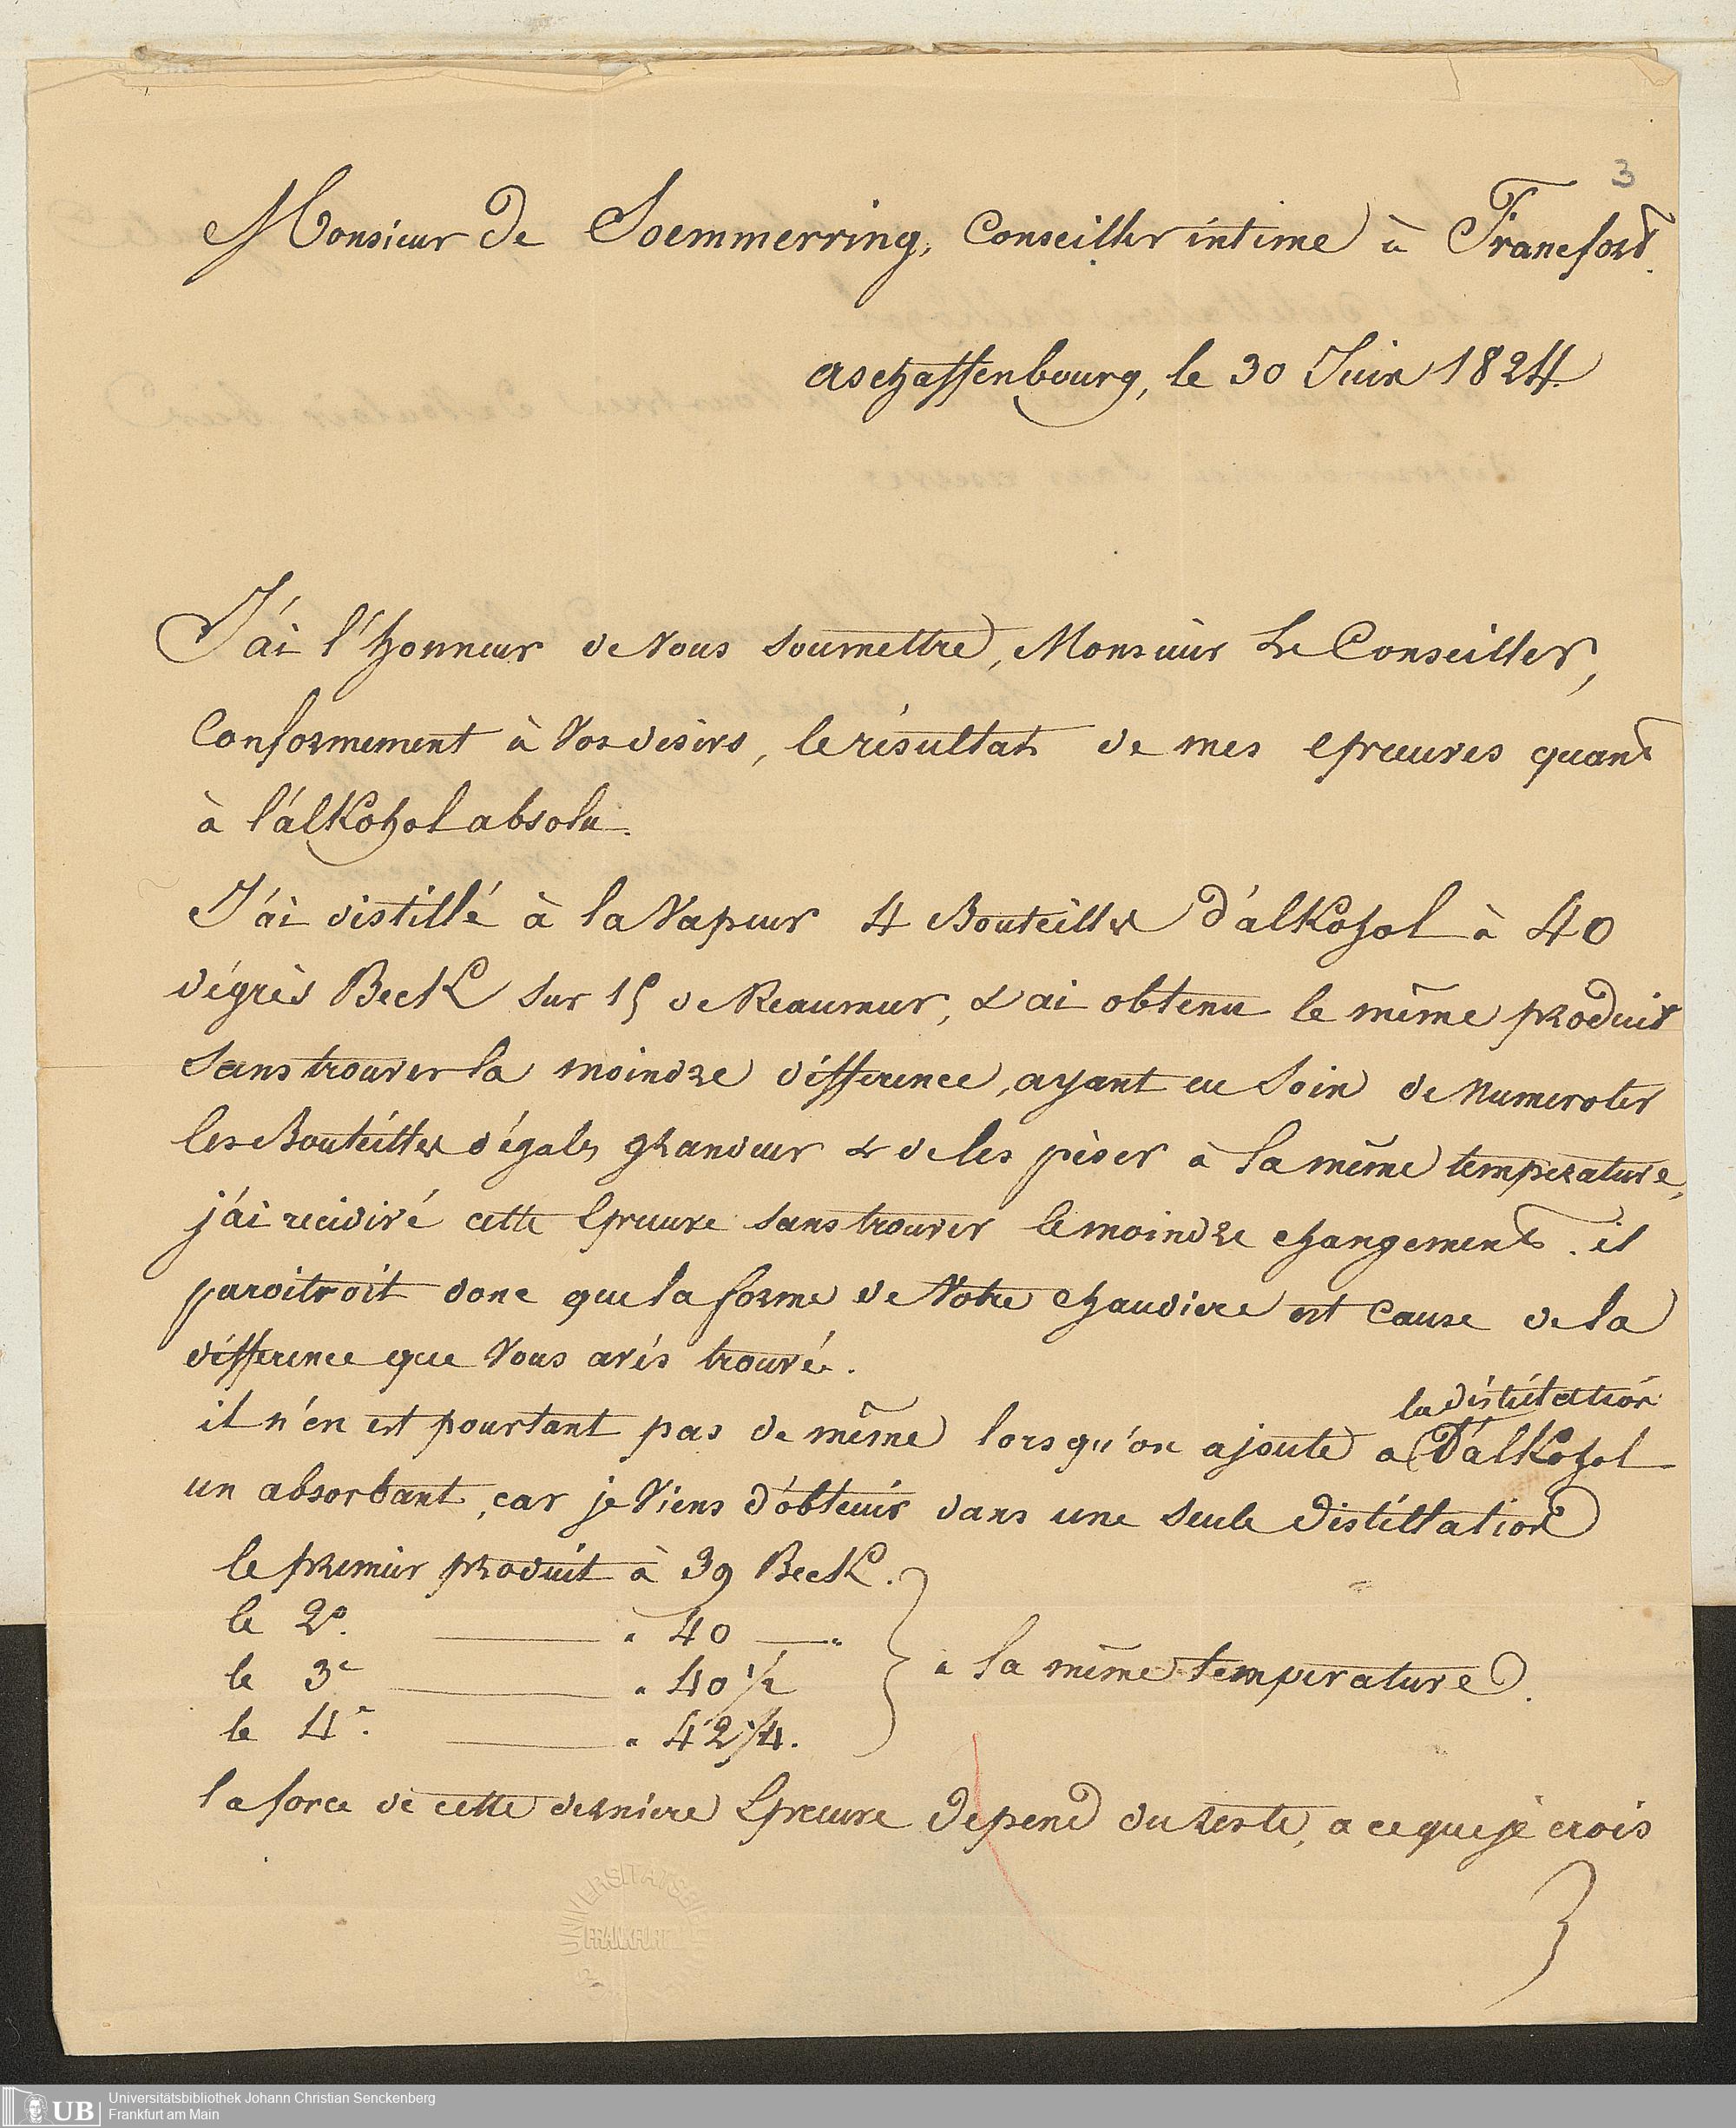 3
Monsieur De Soemmerring, Conseiller intime à Francfort.
aschaffenbourg, le 30 Juin 1824.
J'ai l'honneur de Vous soumettre, Monsieur Le Conseiller,
Conformement à Vos desirs, le résultat de mes epreuves quant
à l'alkohol absolu.
J'ai distillé à la Vapeur 4 Bouteilles d'alkohol à 40
dégrès Beck sur 15 de Reaumur, & ai obtenu le même produit
Sans trouver la moindre différence, ayant eu Soin de Numeroter
les Bouteilles d'égales grandeur & de les pèser à la même temperature,
j'ai recidivé cette Epreuve sans trouver le moindre changement. il
paroitroit donc que la forme de Votre chaudiere est Cause de la
différence que Vous avés trouvée.
il n'en est pourtant pas de même lorsqu'on ajoute a la distillation D'alkohol
un absorbant, car je Viens d'obtenir dans une seule Distillation
le premier produit à 39 Beck.
le 2d. " 40 — "
le 3e " 40 1/2 à la même temperature.
le 4e. " 42 1/4.
la force de cette derniere Epreuve Depend du reste, a ce que je crois
UNIVERSITÄTSBIBLIOTHEK
FRANKFURT
UB
Universitätsbibliothek Johann Christian Senckenberg
Frankfurt am Main